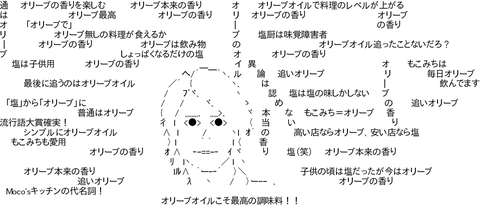 通 オリーブの香りを楽しむ オリーブ本来の香り オ オリーブオイルで料理のレベルが上がる
は オリーブ最高 オリーブの香り リ オリーブの香り オリーブ
オ 「オリーブで」 ー の香り
リ オリーブ無しの料理が食えるか ブ 塩厨は味覚障害者
ー オリーブの香り オリーブは飲み物 の オリーブオイル追ったことないだろ？
ブ しょっぱくなるだけの塩 オ
塩は子供用 オリーブの香り イ 異 オ もこみちは
ル 論 追いオリーブ リ 毎日オリーブ
最後に追うのはオリーブオイル は ー 飲んでます
認 塩は塩の味しかしない ブ
「塩」から「オリーブ」に め の 追いオリーブ
普通はオリーブ 本 な もこみち＝オリーブ 香
流行語大賞確実！ 当 い り
シンプルにオリーブオイル オ の 高い店ならオリーブ、安い店なら塩
もこみちも愛用 香
オリーブの香り り 塩（笑） オリーブ本来の香り
オリーブ本来の香り 子供の頃は塩だったが今はオリーブ
追いオリーブ オリーブの香り
Moco'sキッチンの代名詞！
オリーブオイルこそ最高の調味料！！